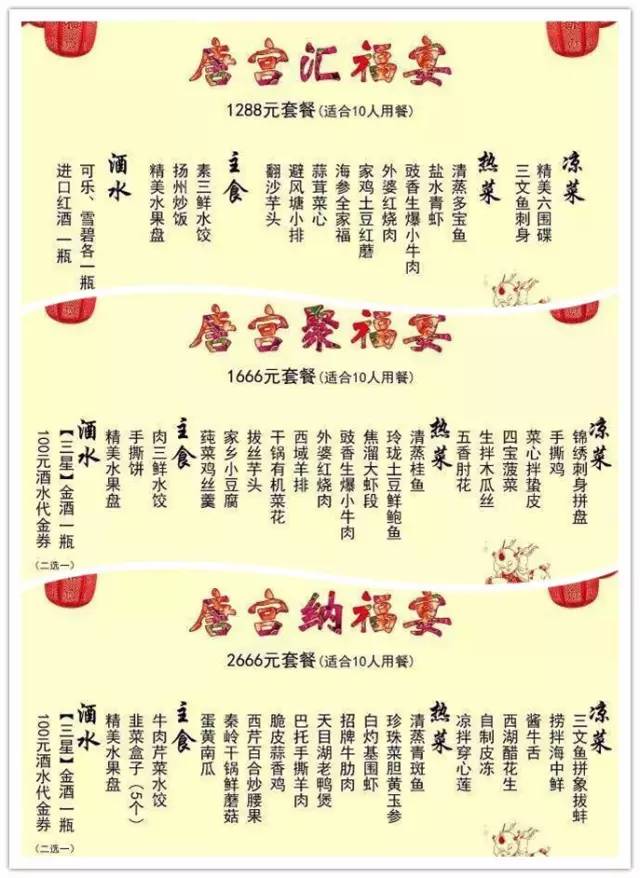 唐宫汇福宴
1288元套餐(适合10人用餐)
凉菜
精美六围碟
三文鱼刺身
热菜
清蒸多宝鱼
盐水青虾
豉香生爆小牛肉
外婆红烧肉
家鸡土豆红蘑
海参全家福
蒜茸菜心
避风塘小排
翻沙芋头
主食
素三鲜水饺
扬州炒饭
精美水果盘
酒水
可乐、雪碧各一瓶
进口红酒一瓶
唐宫聚福宴
1666元套餐(适合10人用餐)
凉菜
锦绣刺身拼盘
手撕鸡
菜心拌蛰皮
四宝菠菜
生拌木瓜丝
五香肘花
热菜
清蒸桂鱼
玲珑土豆鲜鲍鱼
焦溜大虾段
豉香生爆小牛肉
外婆红烧肉
西域羊排
干锅有机菜花
拔丝芋头
家乡小豆腐
莼菜鸡丝羹
主食
肉三鲜水饺
手撕饼
精美水果盘
酒水
【三星】金酒一瓶
100元酒水代金券
(二选一)
唐宫纳福宴
2666元套餐(适合10人用餐)
凉菜
三文鱼拼象拔蚌
捞拌海中鲜
酱牛舌
西湖醋花生
自制皮冻
凉拌穿心莲
热菜
清蒸青斑鱼
珍珠菜胆黄玉参
白灼基围虾
招牌牛肋肉
天目湖老鸭煲
巴托手撕羊肉
脆皮蒜香鸡
西芹百合炒腰果
秦岭干锅鲜蘑菇
蛋黄南瓜
主食
牛肉芹菜水饺
韭菜盒子（5个）
精美水果盘
酒水
【三星】金酒一瓶
100元酒水代金券
(二选一)